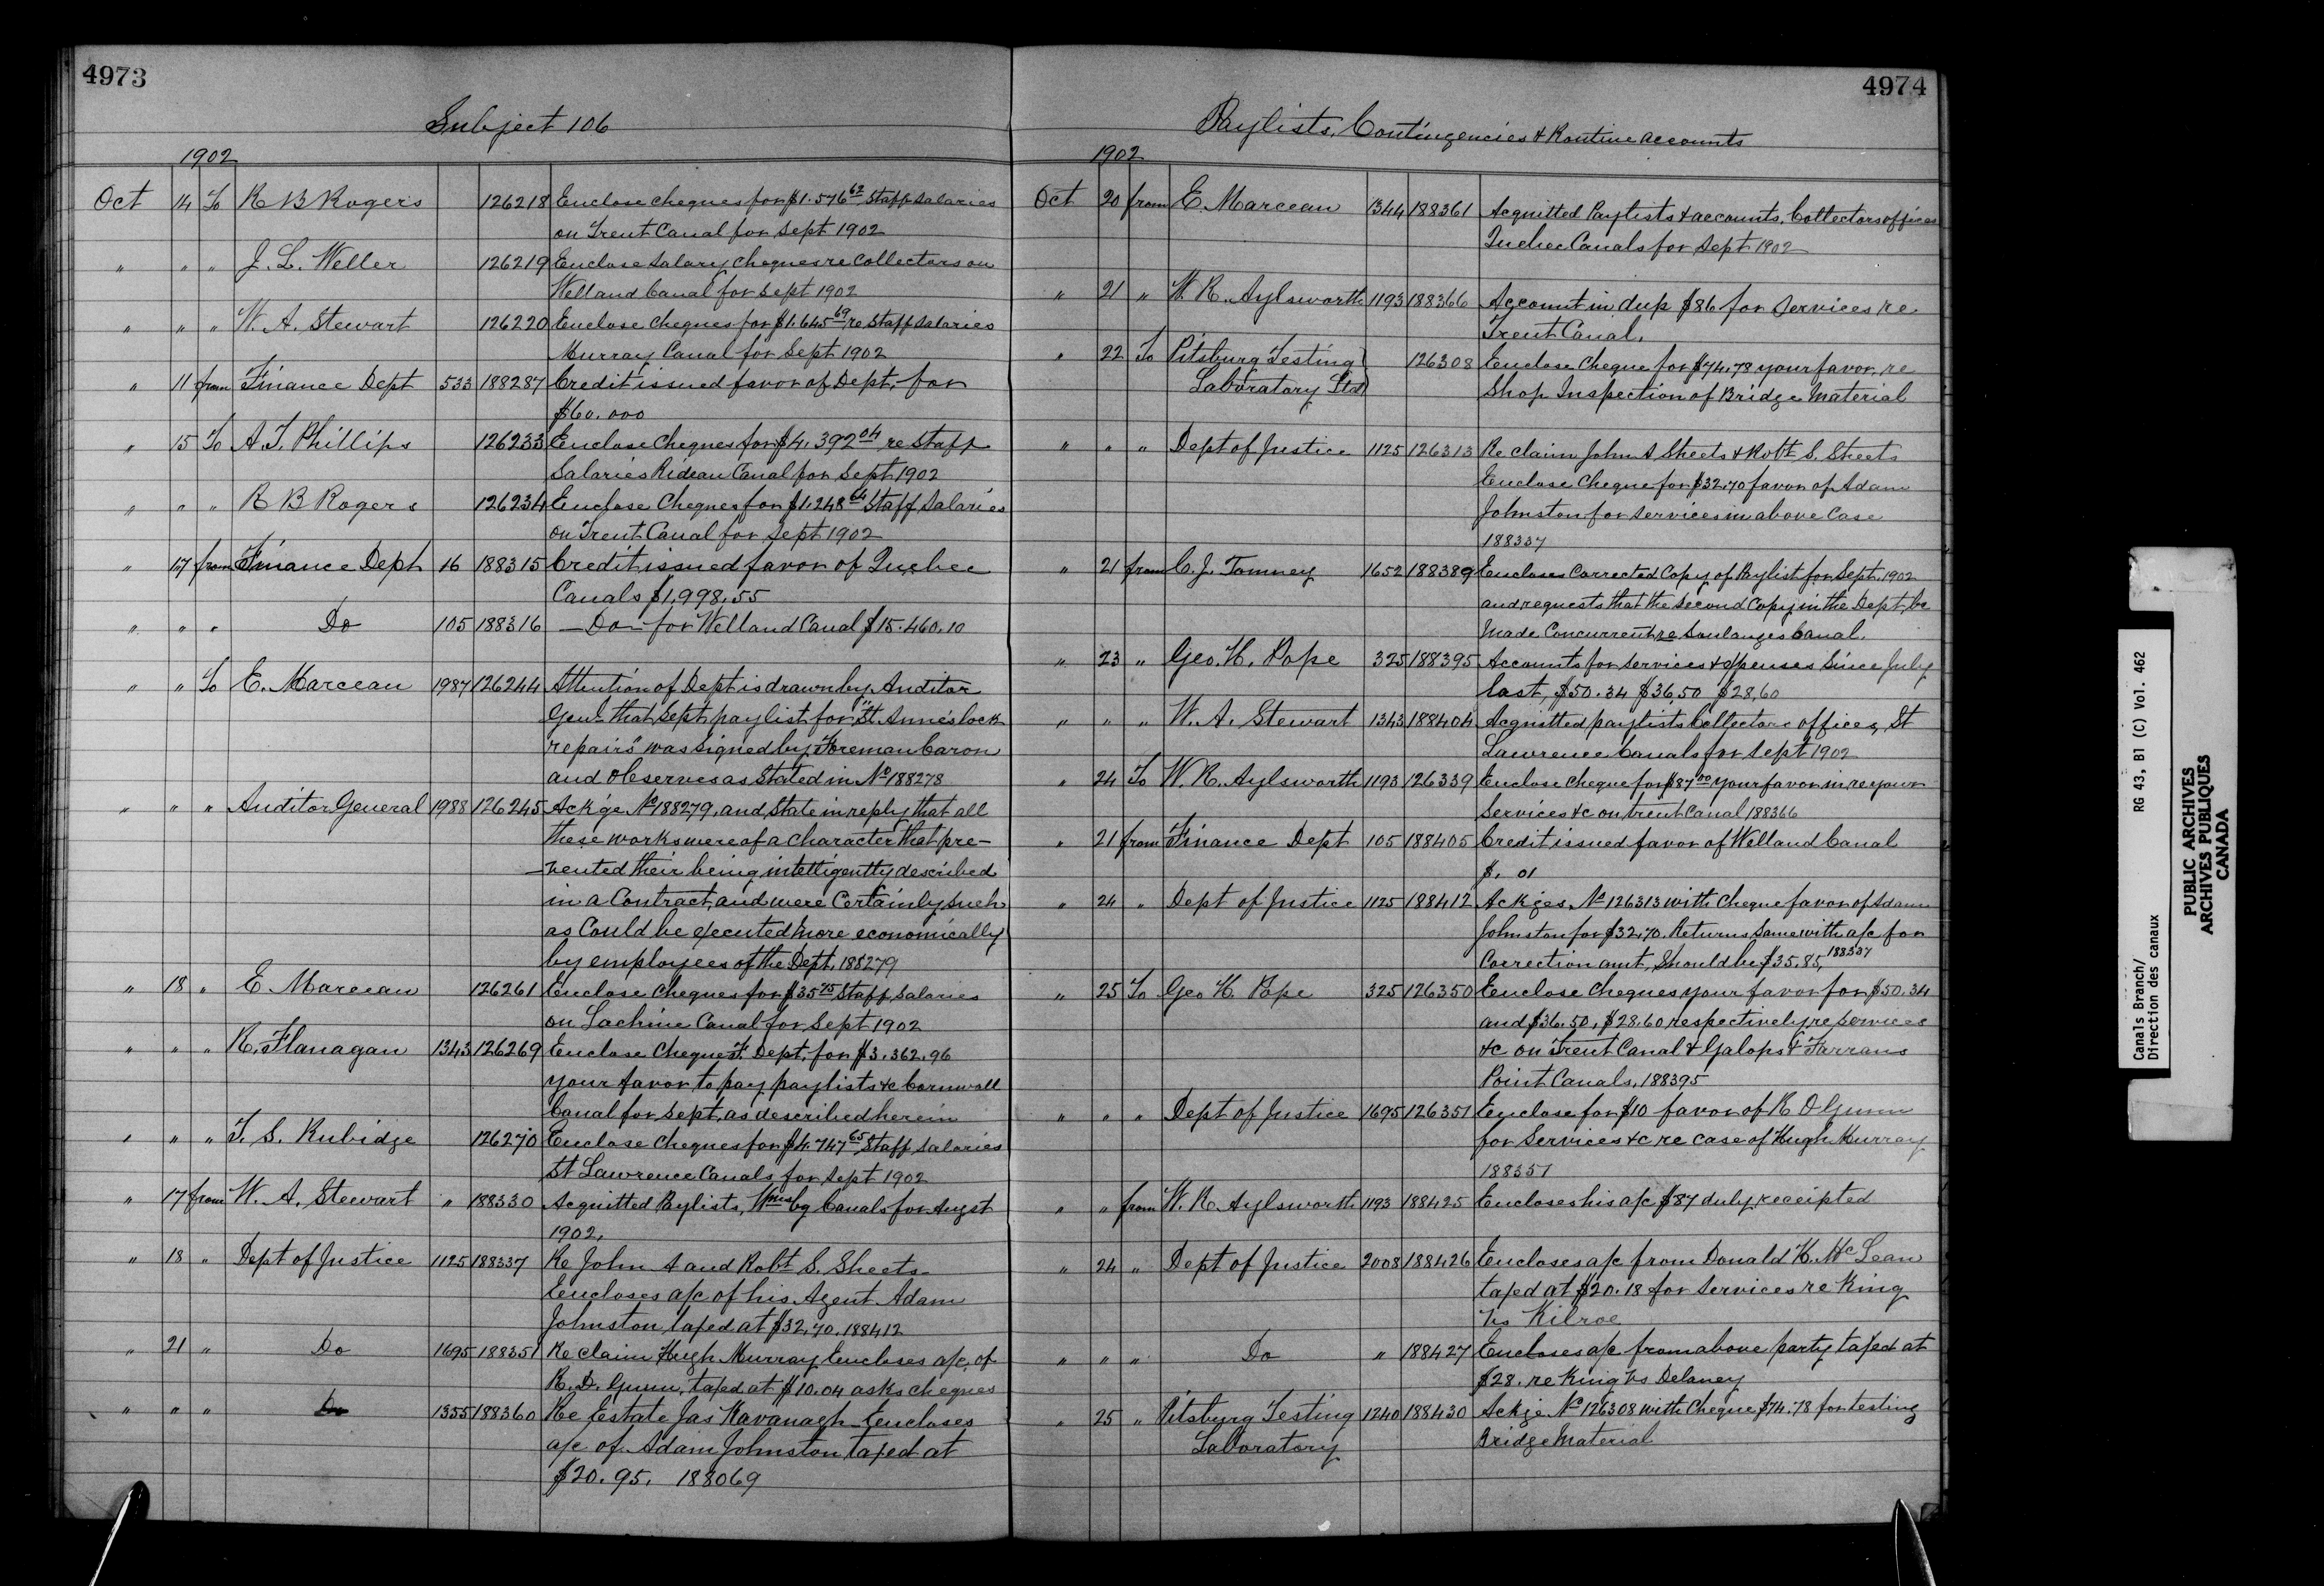 4973
Subject 106
1902
Oct 14 To R B Rogers 126218 Enclose cheques for $1.576 62 Staff Salaries
on Trent Canal for Sept 1902
" " " J. L. Weller 126219 Enclose Salary cheques re Collectors on
Welland Canal for Sept 1902
" " " W. A. Stewart 126220 Enclose cheques for $1.645 69 re Staff Salaries
Murray Canal for Sept 1902
" 11 from Finance Dept 533 188287 Credit issued favor of Dept. for
$60.000
" 15 To A. T. Phillips 126233 Enclose Cheques for $4.392 04 re Staff
Salaries Rideau Canal for Sept 1902
" " " R B Rogers 126234 Enclose Cheques for $1.248 64 Staff Salaries
on Trent Canal for Sept 1902
" 17 from Finance Dept 16 188315 Credit issued favor of Quebec
Canals $1,998.55
" " " Do 105 188316 — Do — for Welland Canal $15.460.10
" " To E. Marceau 1987 126244 Attention of Dept is drawn by Auditor
Genl that Sept paylist for "St. Anne's lock
repairs" was signed by Foreman Caron
and observes as Stated in No 188278
" " " Auditor General 1988 126245 Ackge No 188279, and State in reply that all
these works were of a character that pre-
-vented their being intelligently described
in a Contract, and were Certainly such
as Could be executed more economically
by employees of the Dept. 188279
" 18 " E. Marceau 126261 Enclose Cheques for $35 75 Staff Salaries
on Lachine Canal for Sept 1902
" " " R. Flanagan 1343 126269 Enclose Cheque F. Dept. for $3.362.96
your favor to pay paylists &c Cornwall
Canal for Sept. as described herein
" " " T. S. Rubidge 126270 Enclose Cheques for $4.747 65 Staff Salaries
St Lawrence Canals for Sept 1902
" 17 from W. A. Stewart " 188330 Acquitted Paylists, Wmsbg Canals for Augst
1902.
" 18 " Dept of Justice 1125 188337 Re John A and Robt S. Sheets
Encloses a/c of his Agent Adam
Johnston taxed at $32.70. 188412
" 21 " Do 1695 188351 Re claim Hugh Murray Encloses a/c, of
R. D. Gunn, taxed at $10.04 asks cheques
" " " Do 1355 188360 Re Estate Jas Kavanagh Encloses
a/c of Adam Johnston taxed at
$20.95. 188069
4974
Paylists, Contingencies & Routine accounts
1902
Oct 20 from E. Marceau 1344 188361 Acquitted Paylists & accounts, Collectors offices
Quebec Canals for Sept 1902
" 21 " W. R. Aylsworth 1193 188366 Account in dup $86 for Services re
Trent Canal.
" 22 To Pitsburg Testing 126308 Enclose Cheque for $74.78 your favor, re
Laboratory Ltd Shop Inspection of Bridge Material
" " " Dept of Justice 1125 126313 Re claim John A Sheets & Robt S. Sheets
Enclose Cheque for $32.70 favor of Adam
Johnston for services in above Case
188337
" 21 from C. J. Tomney 1652 188389 Encloses Corrected Copy of Paylist for Sept. 1902
and requests that the Second Copy in the Dept. be
Made Concurrent re Soulanges Canal.
" 23 " Geo. H. Pope 325 188395 Accounts for services & expenses Since July
last, $50.34 $36.50 $28.60
" " " W. A. Stewart 1343 188404 Acquitted paylists Collectors offices, St
Lawrence Canals for Sept 1902
" 24 To W. R. Aylsworth 1193 126339 Enclose Cheque for $87 00 your favor in re your
Services &c on trent Canal 188366
" 21 from Finance Dept 105 188405 Credit issued favor of Welland Canal
$. 01
" 24 " Dept of Justice 1125 188412 Ackges No 126313 with Cheque favor of Adam
Johnston for $32.70. Returns same with a/c for
Correction amt. Should be $35.85, 188337
" 25 To Geo H. Pope 325 126350 Enclose Cheques your favor for $50.34
and $36.50, $28.60 respectively re services
&c on Trent Canal & Galops & Farrans
Point Canals, 188395
" " " Dept of Justice 1695 126351 Enclose for $10 favor of R D Gunn
for Services &c re case of Hugh Murray
188351
" " from W. R. Aylsworth 1193 188425 Encloses his a/c $87 duly receipted
" 24 " Dept of Justice 2008 188426 Encloses a/c from Donald H. McLean
taxed at $20.18 for services re King
vs Kilroe
" " " Do " 188427 Encloses a/c from above party taxed at
$28. re King vs Delaney
" 25 " Pitsburg Testing 1240 188430 Ackge No 126308 with Cheque $74.78 for testing
Laboratory Bridge Material
Canals Branch/ RG 43, B1 (C) Vol. 462
Direction des canaux
PUBLIC ARCHIVES
ARCHIVES PUBLIQUES
CANADA